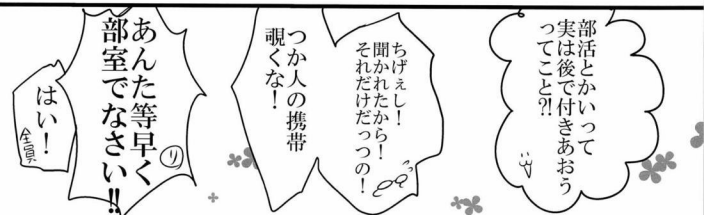 部活とかいって
実は後で付きあおう
ってこと?!
ちげぇし！
聞かれたから！
それだけだっつの！
つか人の携帯
覗くな！
あんた等早く
部室でなさい!!
り
はい！
全員